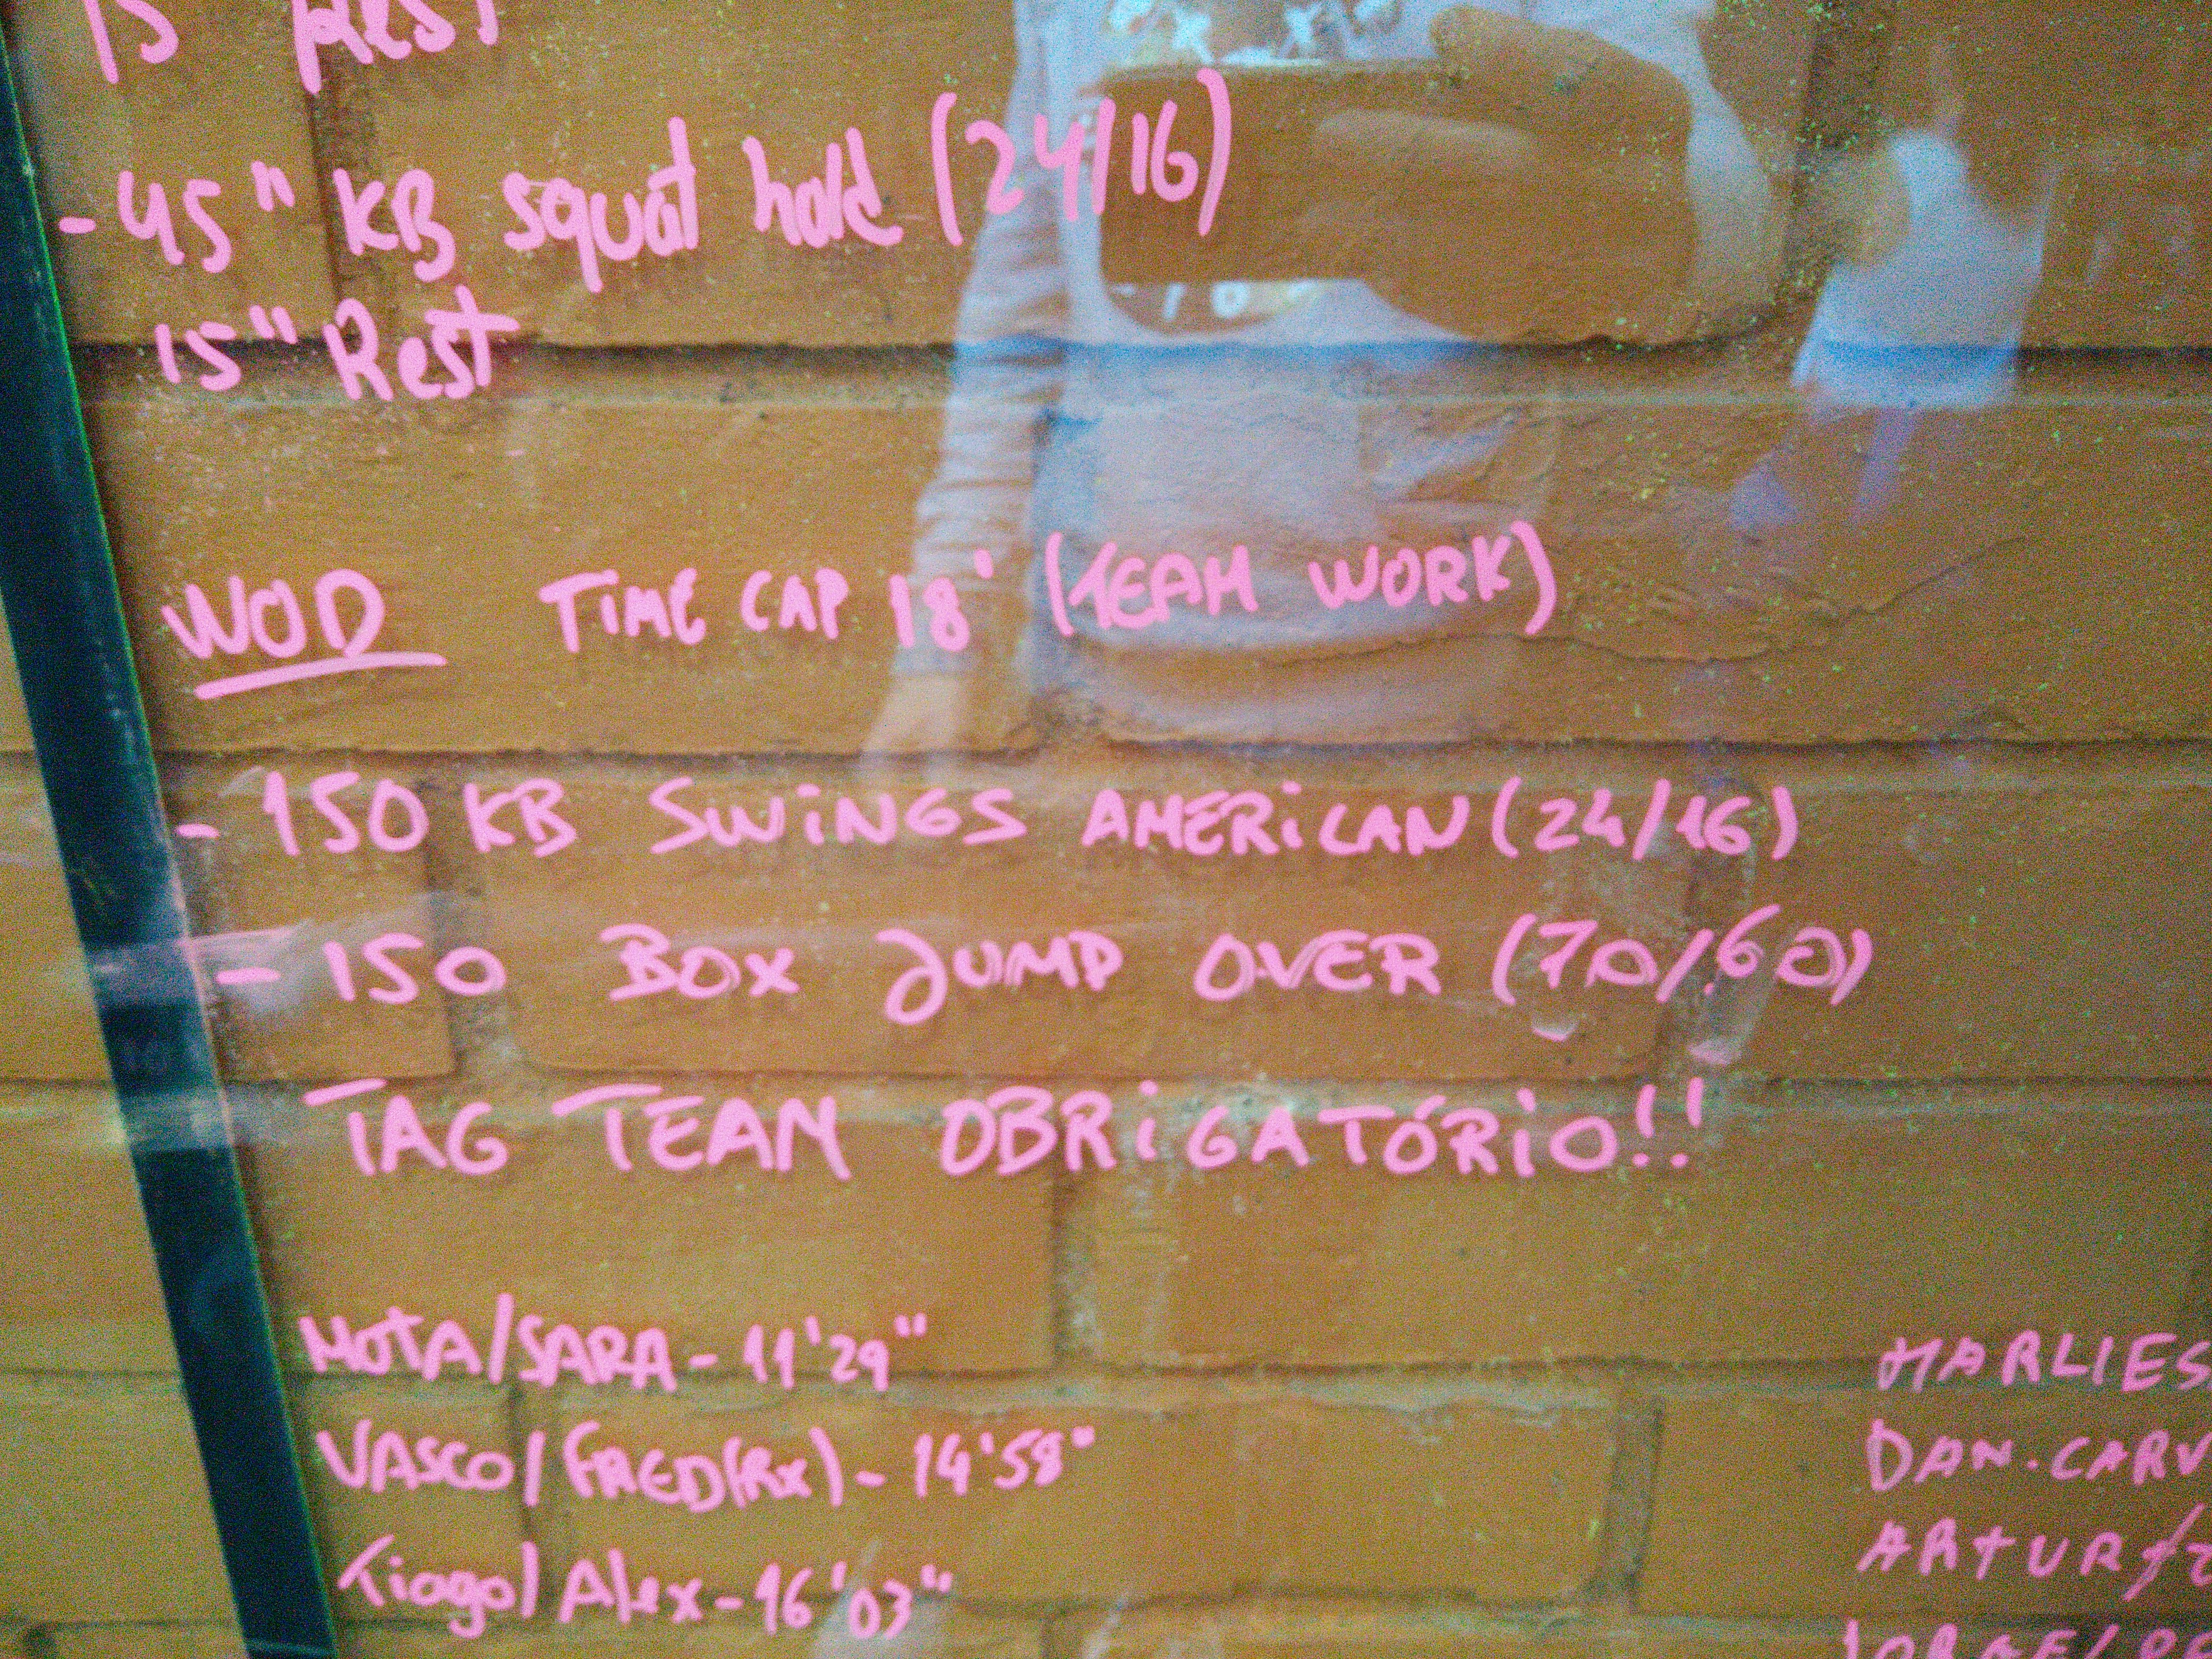 15" Rest
- 45" KB squat hold (24/16)
15" Rest
WOD TIME CAP 18' (TEAM WORK)
- 150 KB SWiNGS AMERiCAN (24/16)
- 150 BOX JUMP OVER (70/60)
TAG TEAM OBRiGATÓRiO!!
MOTA/SARA - 11'29"
VASCO/FRED(Rx) - 14'58"
Tiago/Alex - 16'03"
MARLIES
DAN. CARV
ARTUR/
JORGE/